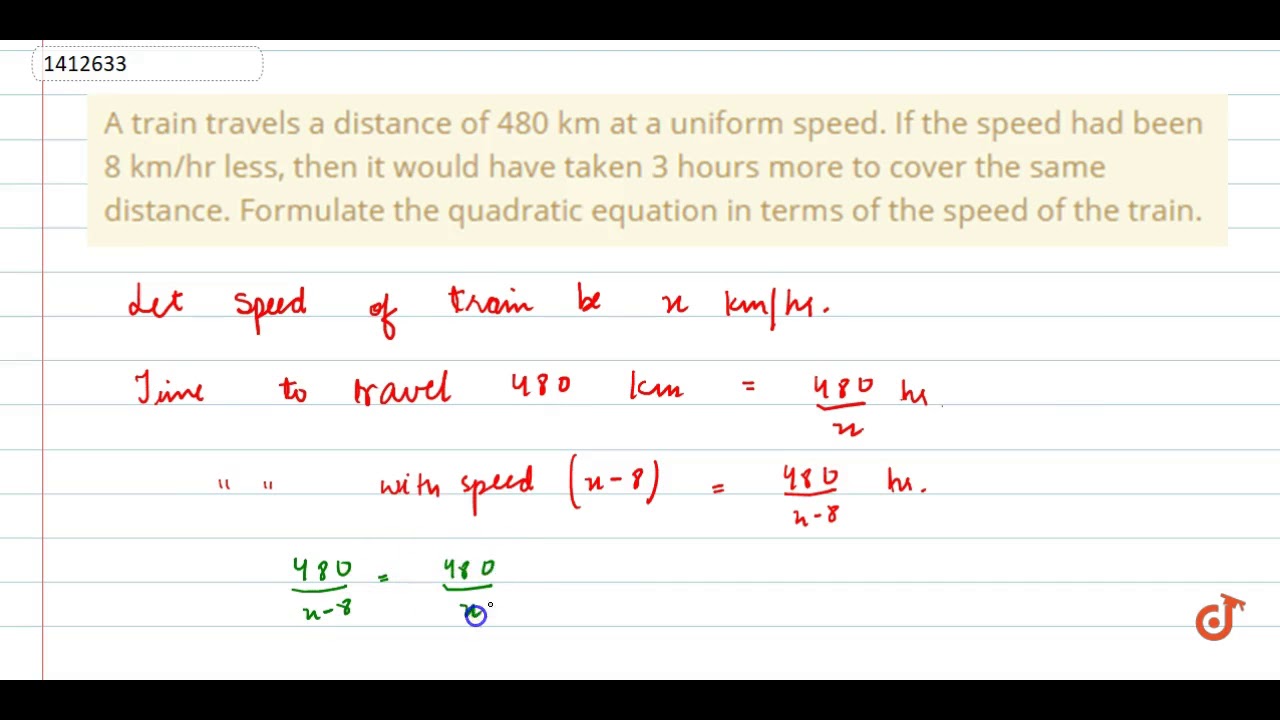 1412633
A train travels a distance of 480 km at a uniform speed. If the speed had been
8 km/hr less, then it would have taken 3 hours more to cover the same
distance. Formulate the quadratic equation in terms of the speed of the train.
Let speed of train be x km/hr.
Time to travel 480 km = 480/x hr.
" " with speed (x-8) = 480/x-8 hr.
480/x-8 = 480/x